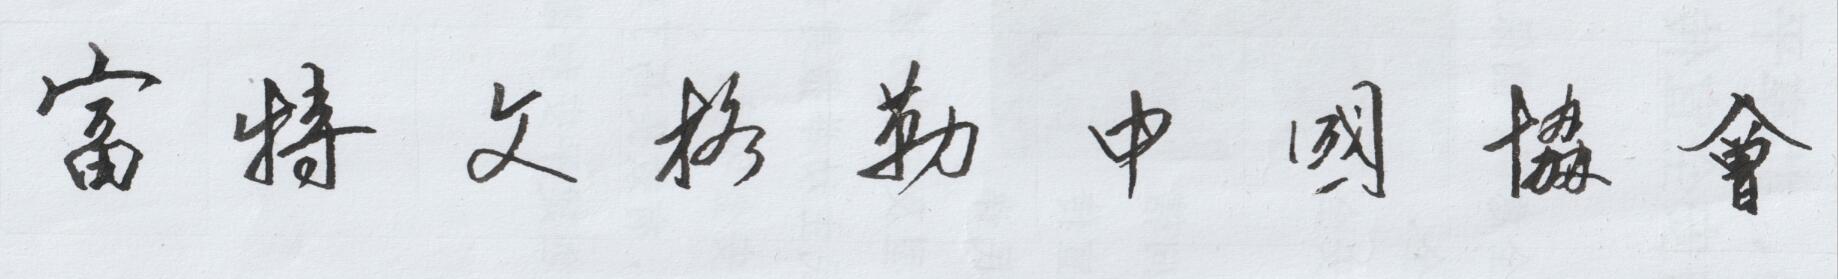 富特文格勒中國協會